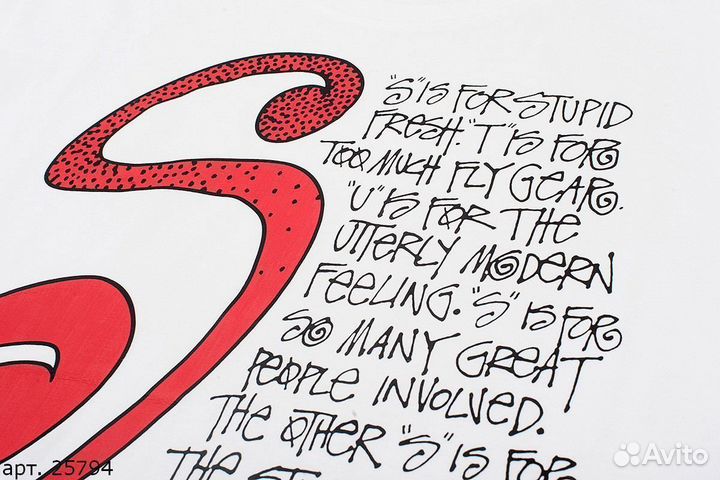 "S" IS FOR STUPID
FRESH. "T" IS FOR
TOO MUCH FLY GEAR.
"U" IS FOR THE
UTTERLY MODERN
FEELING. "S" IS FOR
SO MANY GREAT
PEOPLE INVOLVED.
THE OTHER "S" IS FOR
THE
арт. 25794
Avito